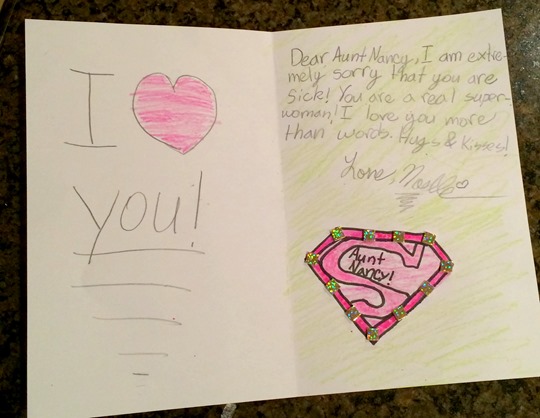 I
you!
Dear Aunt Nancy, I am extre-
mely sorry that you are
sick! You are a real super-
woman! I love you more
than words. Hugs & Kisses!
Love, Noelle
Aunt
Nancy!